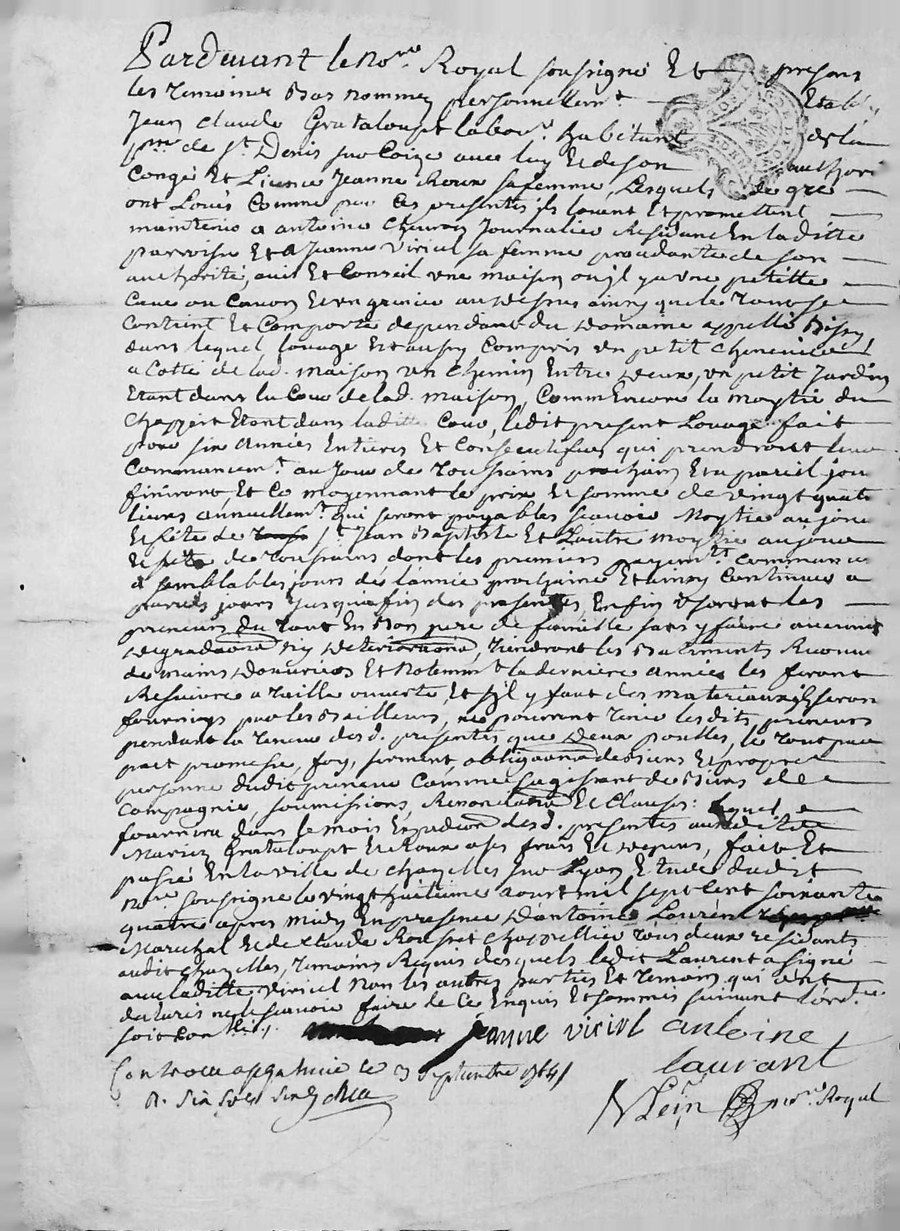 Pardevant le no.re Royal soussigné Et presens
les temoins bas nommez personnellem.t Etablis
Jean claude Grataloupt labou.r habitant de la
p.sse de S.t Denis sur Coize avec luy Et de son authori
Congé Et Licence Jeanne Roux sa femme, Lesquels de gré
ont Loués Comme par Ces presentes ils louent Et promettent
maintenir a antoine Journalier Residant En laditte
parroisse Et a Jeanne Viricel sa femme procedante de son
authorité, avis Et Conseil une maison ou il y a une petitte
cave ou Cavon Et un grenier au dessus ainsy que le tout se
Contient Et Comporte dependant du Domaine appellé
dans lequel louage Est aussy Compris un petit chenevier
a Cotté de lad. maison un chemin Entre deux, un petit Jardin
Etant dans la Cour de lad. maison, Comm'Encore la moytié du
Etant dans laditte Cour, ledit present Louage fait
pour six années Entieres Et Consecutifves qui prendront leur
Commancem.t au Jour de toussains prochain Et a pareil jour
finiront Et Ce moyennant le prix Et somme de vingt quatre
livres annuellem.t qui seront payables scavoir moytié au jour
Et fête de S.t Jean Baptiste Et L'autre moytié au jour
Et fette de toussains dont les premiers payem.ts commance
a semblables jours de l'année prochaine Et ainsy Continuer a
pareils jours jusqu'a fin des presentes, Enfin Useront les
preneurs du tout En bon pere de famille sans y faire aucunes
degradations ny deteriorations, tiendront les batiments Recouvert
de mains d'ouvriers Et notemm.t la derniere année les feront
Resuivre a taille ouverte, Et s'il y faut des materiaux ils seront
fournings par les bailleurs, ne pourront tenir lesdits preneurs
pendant la teneur desd. presentes que deux poulles, le tout par
part promesse, foy, serment obligations de biens Et propre
personne dudit preneur Comme s'agissant de biens de
Campagne, soumissions, Renonciations Et Clauses: lequel
fournira dans le mois Expedition desd. presentes auxdits
Mariez Grataloupt Et Roux a ses frais Et depens, fait Et
passé En la ville de chazelles sur Lyon Etude dudit
no.re soussigné le vingt huitieme aoust mil sept Cent soixante
quatre apres midy En presence d'antoine Laurent
Marechal Et de claude Rousset chappellier tous deux residants
audit chazelles, temoins Requis desquels ledit Laurent a signé
avec laditte Viricel non les autres parties Et temoin qui ont
declarés ne le scavoir faire de Ce Enquis Et sommés suivant l'ord.ce
soit Con.llé,
jeanne viricel antoine
laurant
Controllé a le 3 septembre 1764
R. six sols
no.re Royal